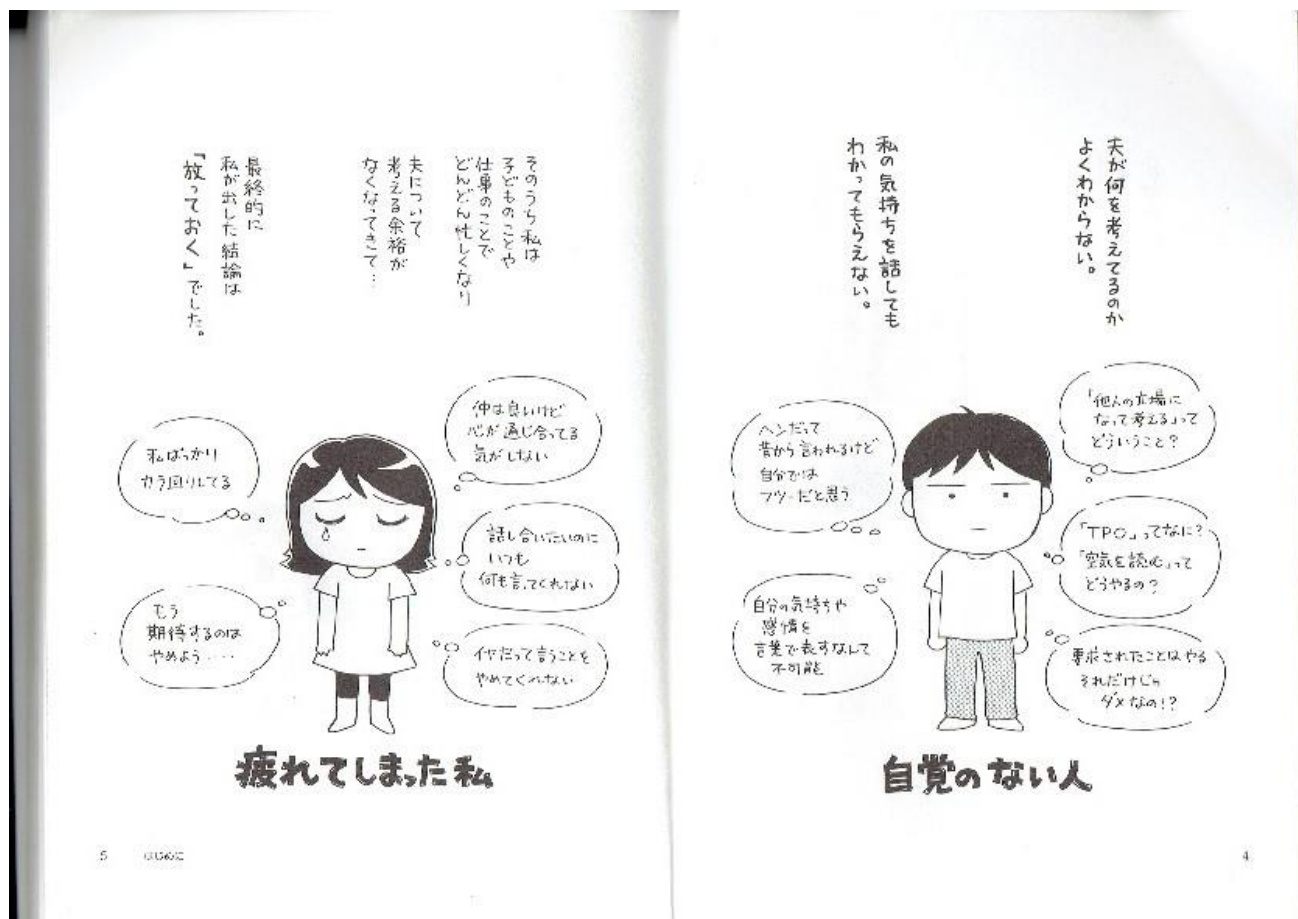 夫が何を考えてるのか
よくわからない。
私の気持ちを話しても
わかってもらえない。
「他人の立場に
なって考える」って
どういうこと？
ヘンだって
昔から言われるけど
自分では
フツーだと思う
「TPO」ってなに？
「空気を読む」って
どうやるの？
自分の気持ちや
感情を
言葉で表すなんて
不可能
要求されたことはやる
それだけじゃ
ダメなの！？
自覚のない人
4
そのうち私は
子どものことや
仕事のことで
どんどん忙しくなり
夫について
考える余裕が
なくなってきて…
最終的に
私が出した結論は
「放っておく」でした。
仲は良いけど
心が通じ合ってる
気がしない
私ばっかり
カラ回りしてる
話し合いたいのに
いつも
何も言ってくれない
もう
期待するのは
やめよう……
イヤだって言うことを
やめてくれない
疲れてしまった私
5 はじめに